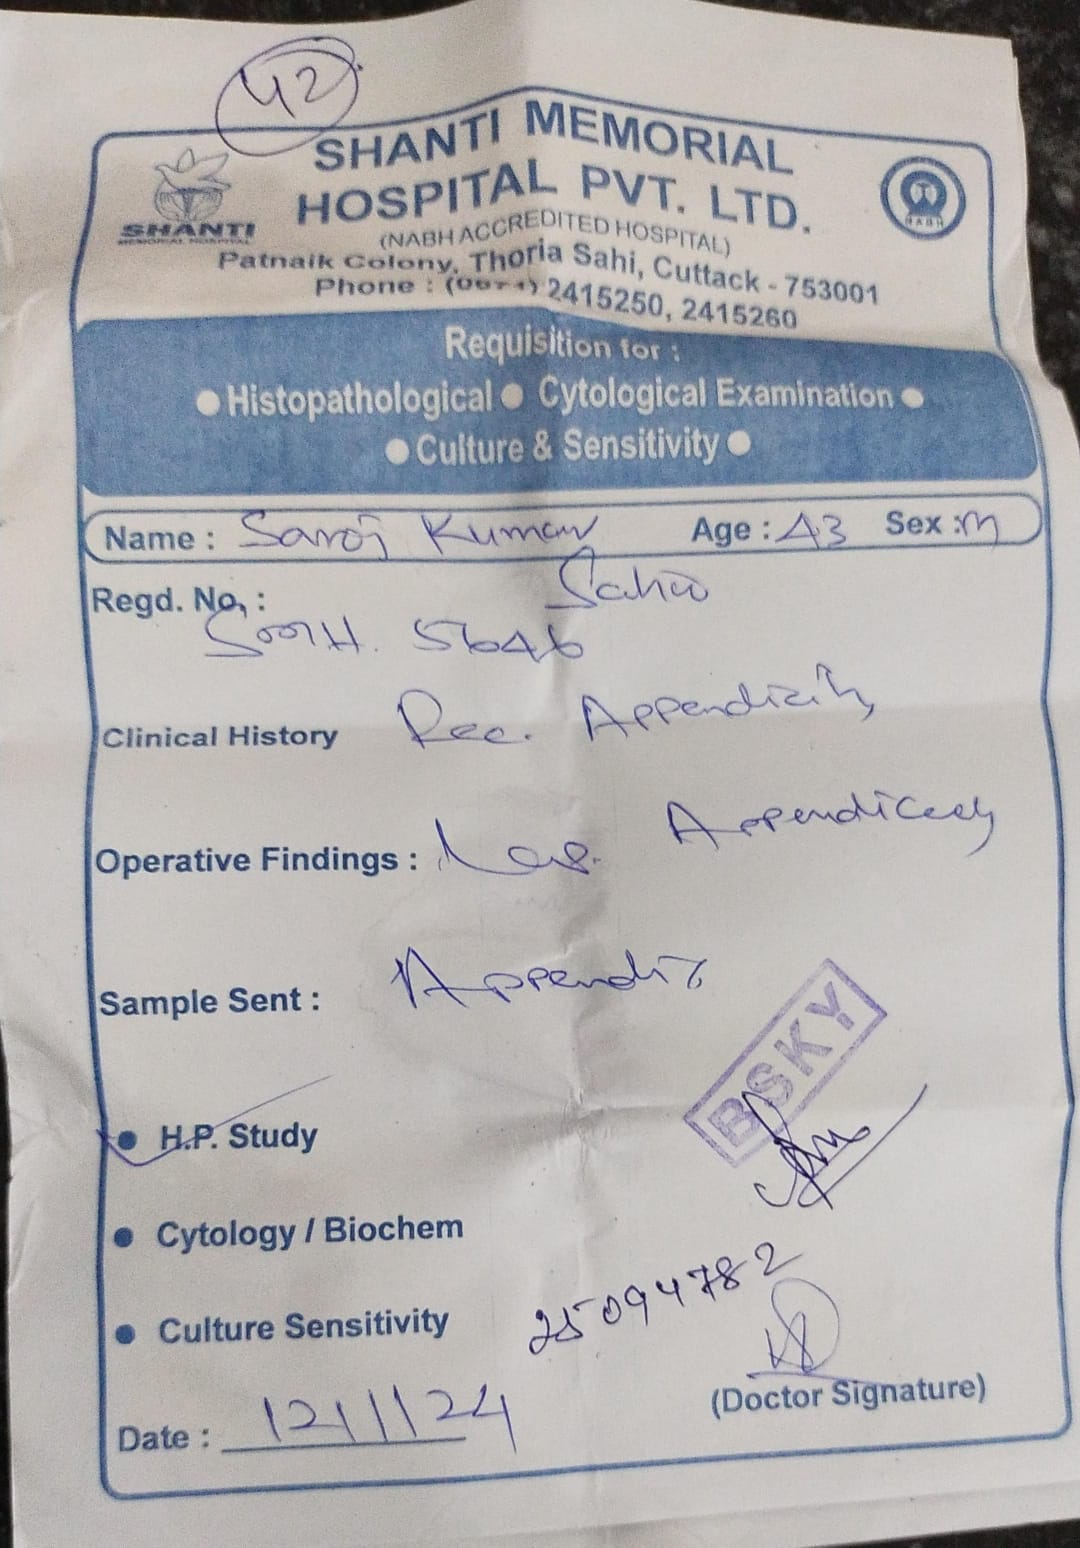 42
SHANTI MEMORIAL
HOSPITAL PVT. LTD.
(NABH ACCREDITED HOSPITAL)
SHANTI
MEMORIAL HOSPITAL
NABH
Patnaik Colony, Thoria Sahi, Cuttack - 753001
Phone : (0671) 2415250, 2415260
Requisition for :
● Histopathological ● Cytological Examination ●
● Culture & Sensitivity ●
Name : Saroj Kumar Age : 43 Sex : M
Sahoo
Regd. No. :
5646
Clinical History Rec. Appendicitis
Operative Findings : Lap. Appendicectomy
Sample Sent : Appendix
BSKY
● H.P. Study
● Cytology / Biochem
● Culture Sensitivity
25094782
(Doctor Signature)
Date : 12/1/24